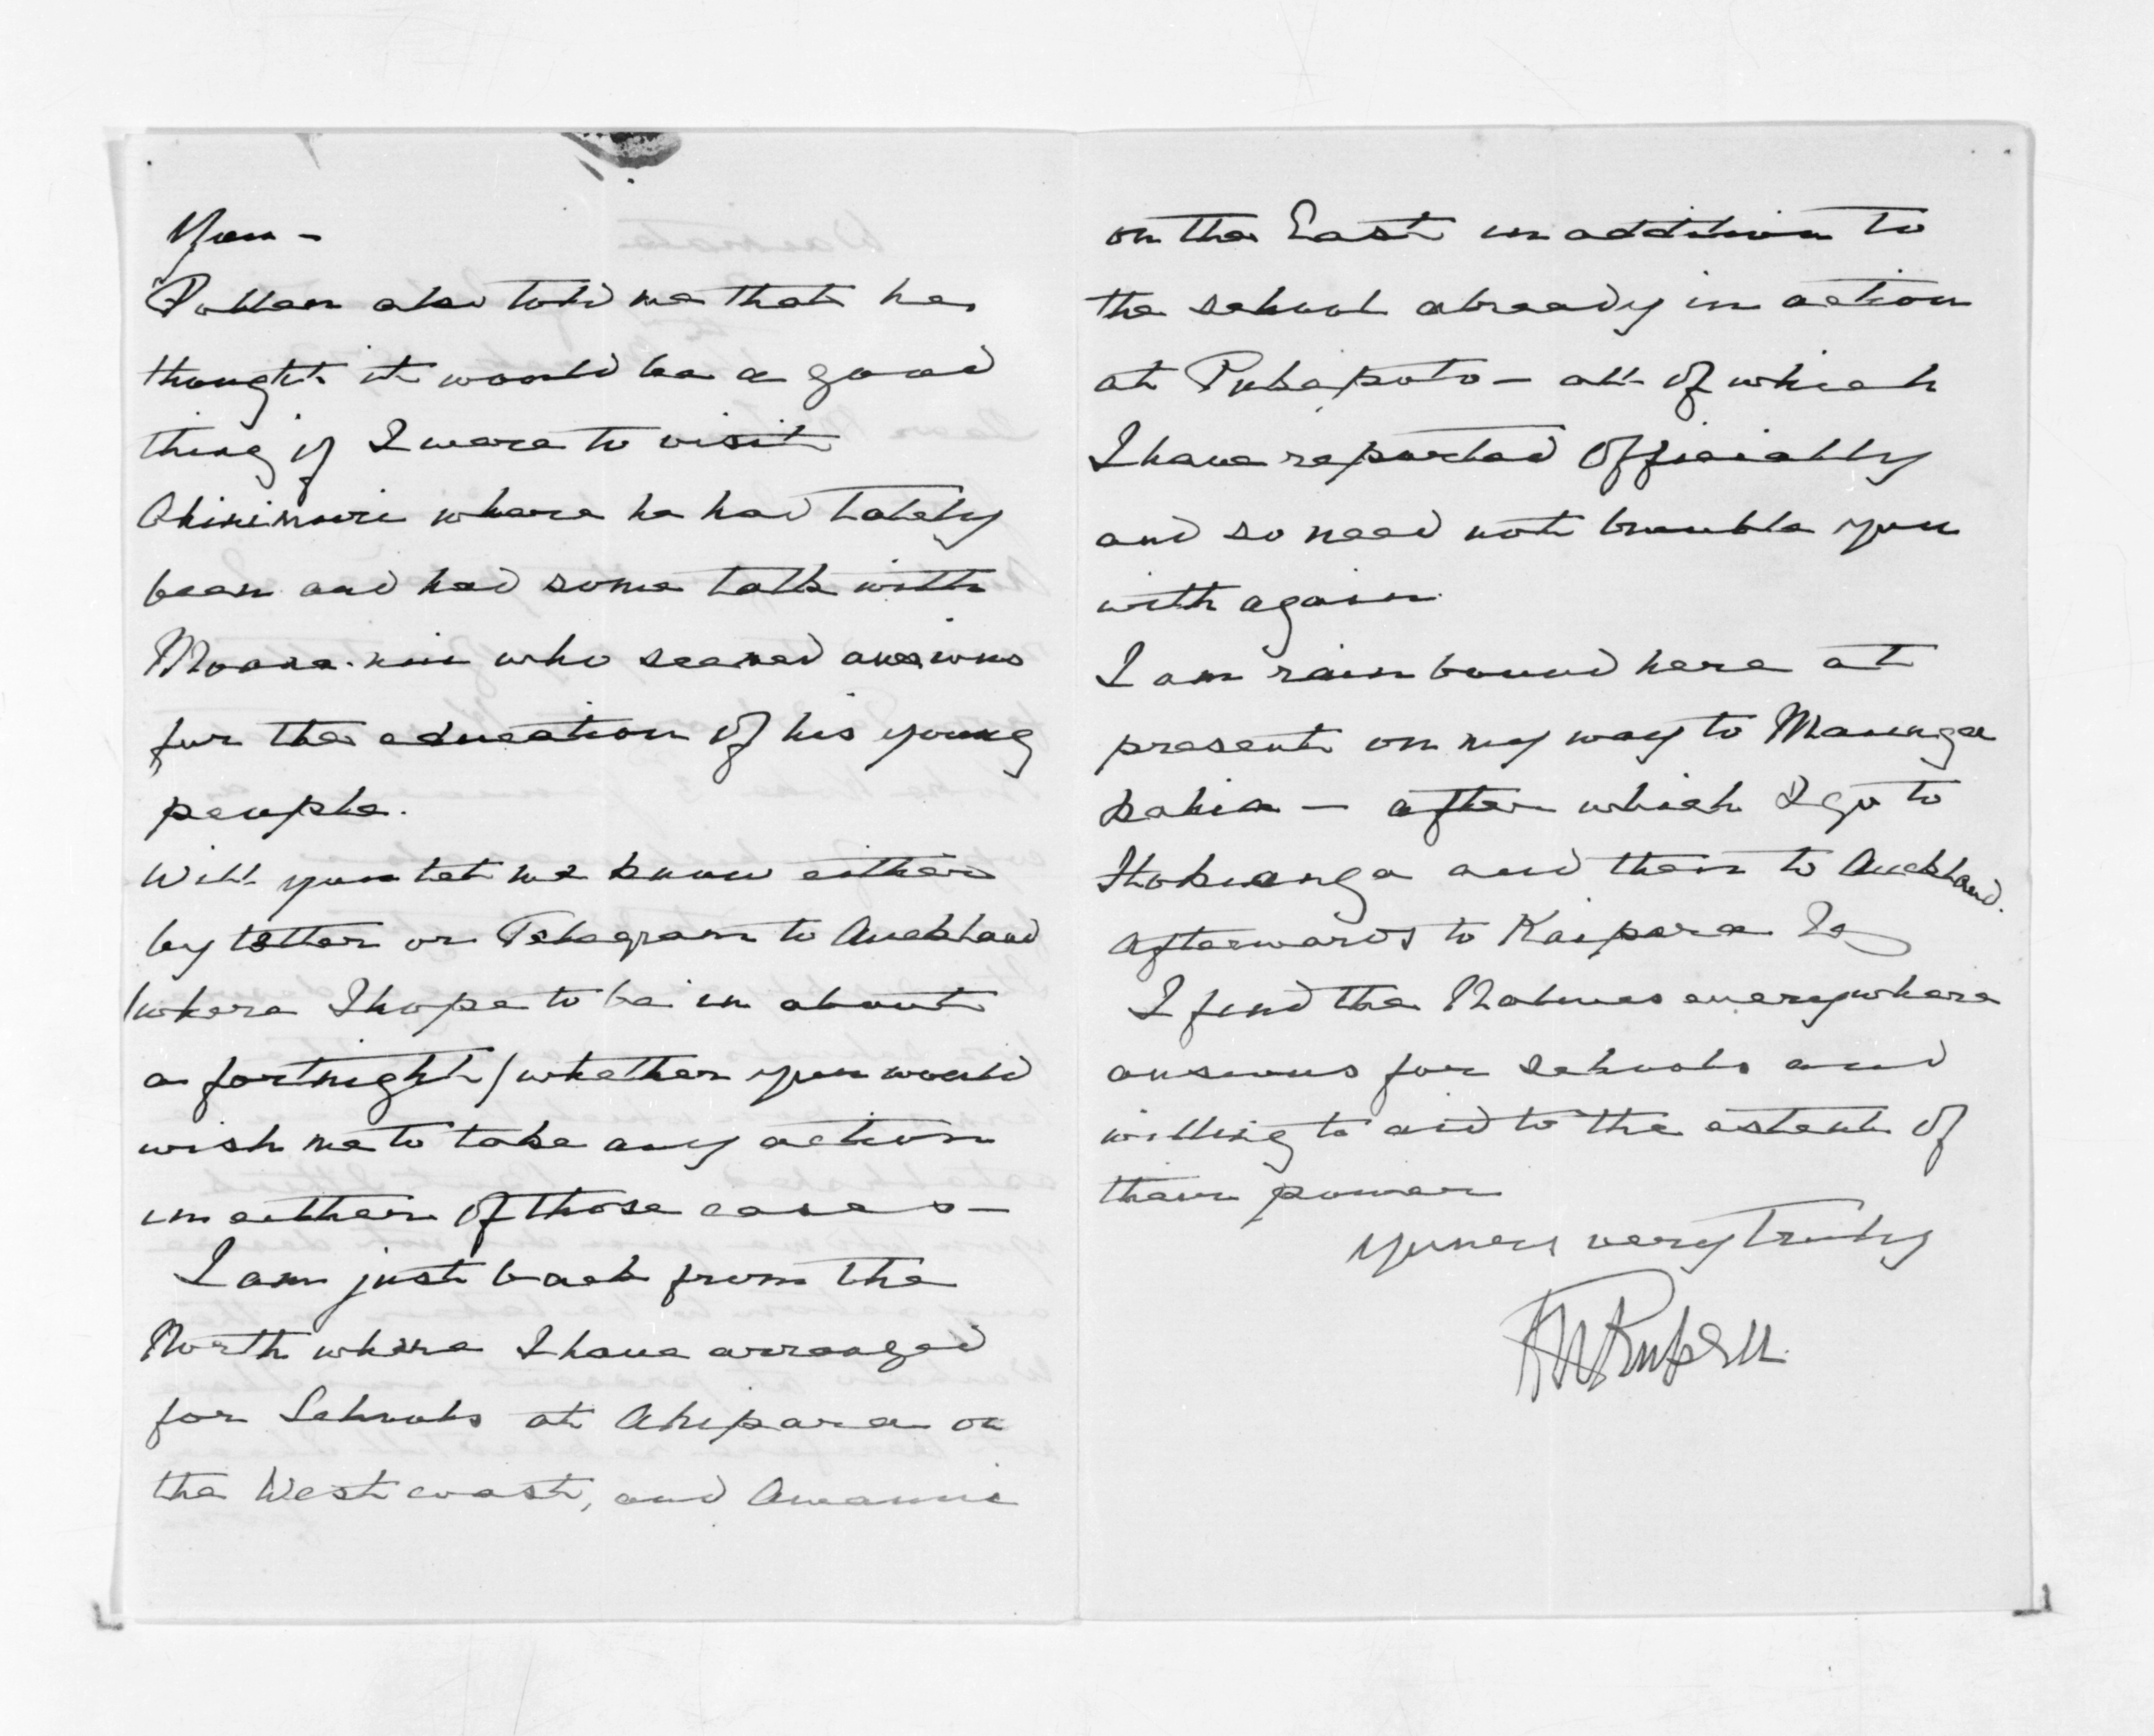 you –
Pollen also told me that he
thought it would be a good
thing if I were to visit
Ohinimuri where he had lately
been and had some talk with
Moananui who seemed anxious
for the education of his young
people.
Will you let me know either
by letter or Telegram to Auckland
(where I hope to be in about
a fortnight) whether you would
wish me to take any action
in either of those cases –
I am just back from the
North where I have arranged
for Schools at Ahipara on
the West coast, and Awanui
on the East in addition to
the school already in action
at Pukepoto – all of which
I have reported officially
and so need not trouble you
with again.
I am rain bound here at
present on my way to Maunga
kahia – after which I go to
Hokianga and then to Auckland.
afterwards to Kaipara &c
I find the Natives everywhere
anxious for schools and
willing to aid to the extent of
their power
yours very truly